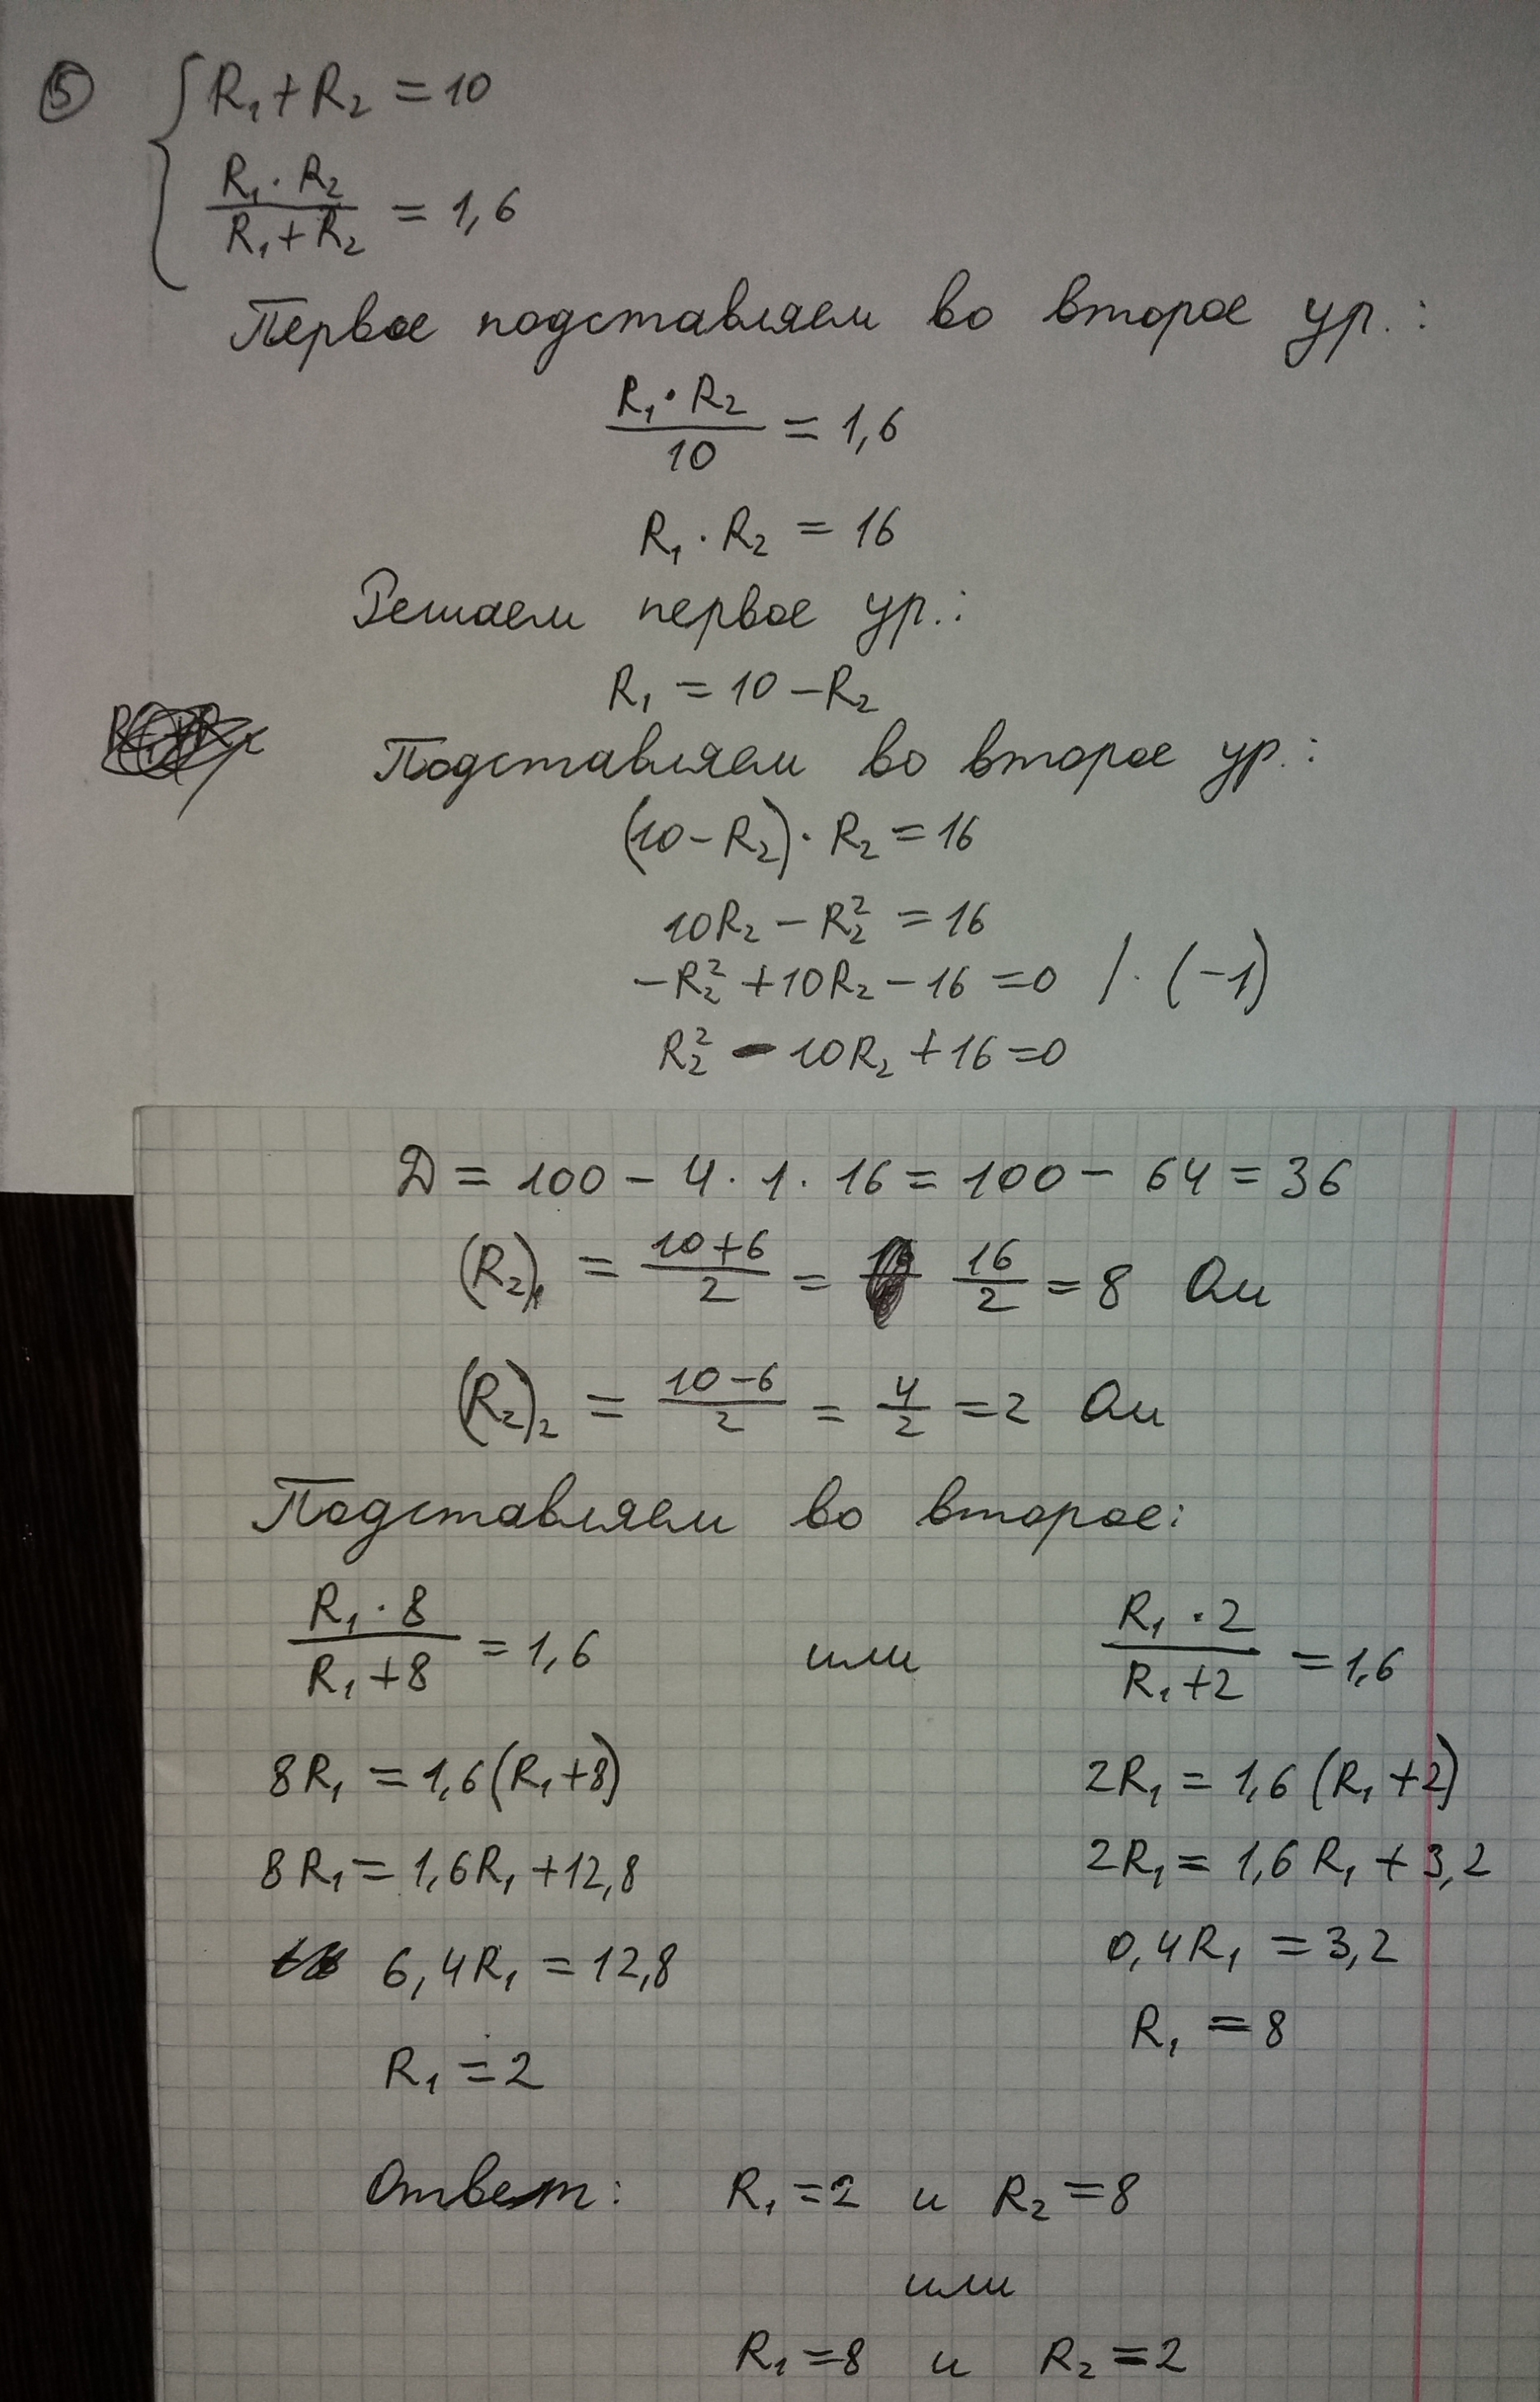 5
R₁ + R₂ = 10
R₁ · R₂ / R₁ + R₂ = 1,6
Первое подставляем во второе ур.:
R₁ · R₂ / 10 = 1,6
R₁ · R₂ = 16
Решаем первое ур.:
R₁ = 10 – R₂
Подставляем во второе ур.:
(10 – R₂) · R₂ = 16
10R₂ – R₂² = 16
–R₂² + 10R₂ – 16 = 0 / · (–1)
R₂² – 10R₂ + 16 = 0
Д = 100 – 4 · 1 · 16 = 100 – 64 = 36
(R₂)₁ = 10+6 / 2 = 16/2 = 8 Ом
(R₂)₂ = 10–6 / 2 = 4/2 = 2 Ом
Подставляем во второе:
R₁ · 8 / R₁ + 8 = 1,6 или R₁ · 2 / R₁ + 2 = 1,6
8R₁ = 1,6(R₁ + 8) 2R₁ = 1,6(R₁ + 2)
8R₁ = 1,6R₁ + 12,8 2R₁ = 1,6R₁ + 3,2
6,4R₁ = 12,8 0,4R₁ = 3,2
R₁ = 2 R₁ = 8
Ответ: R₁ = 2 и R₂ = 8
или
R₁ = 8 и R₂ = 2